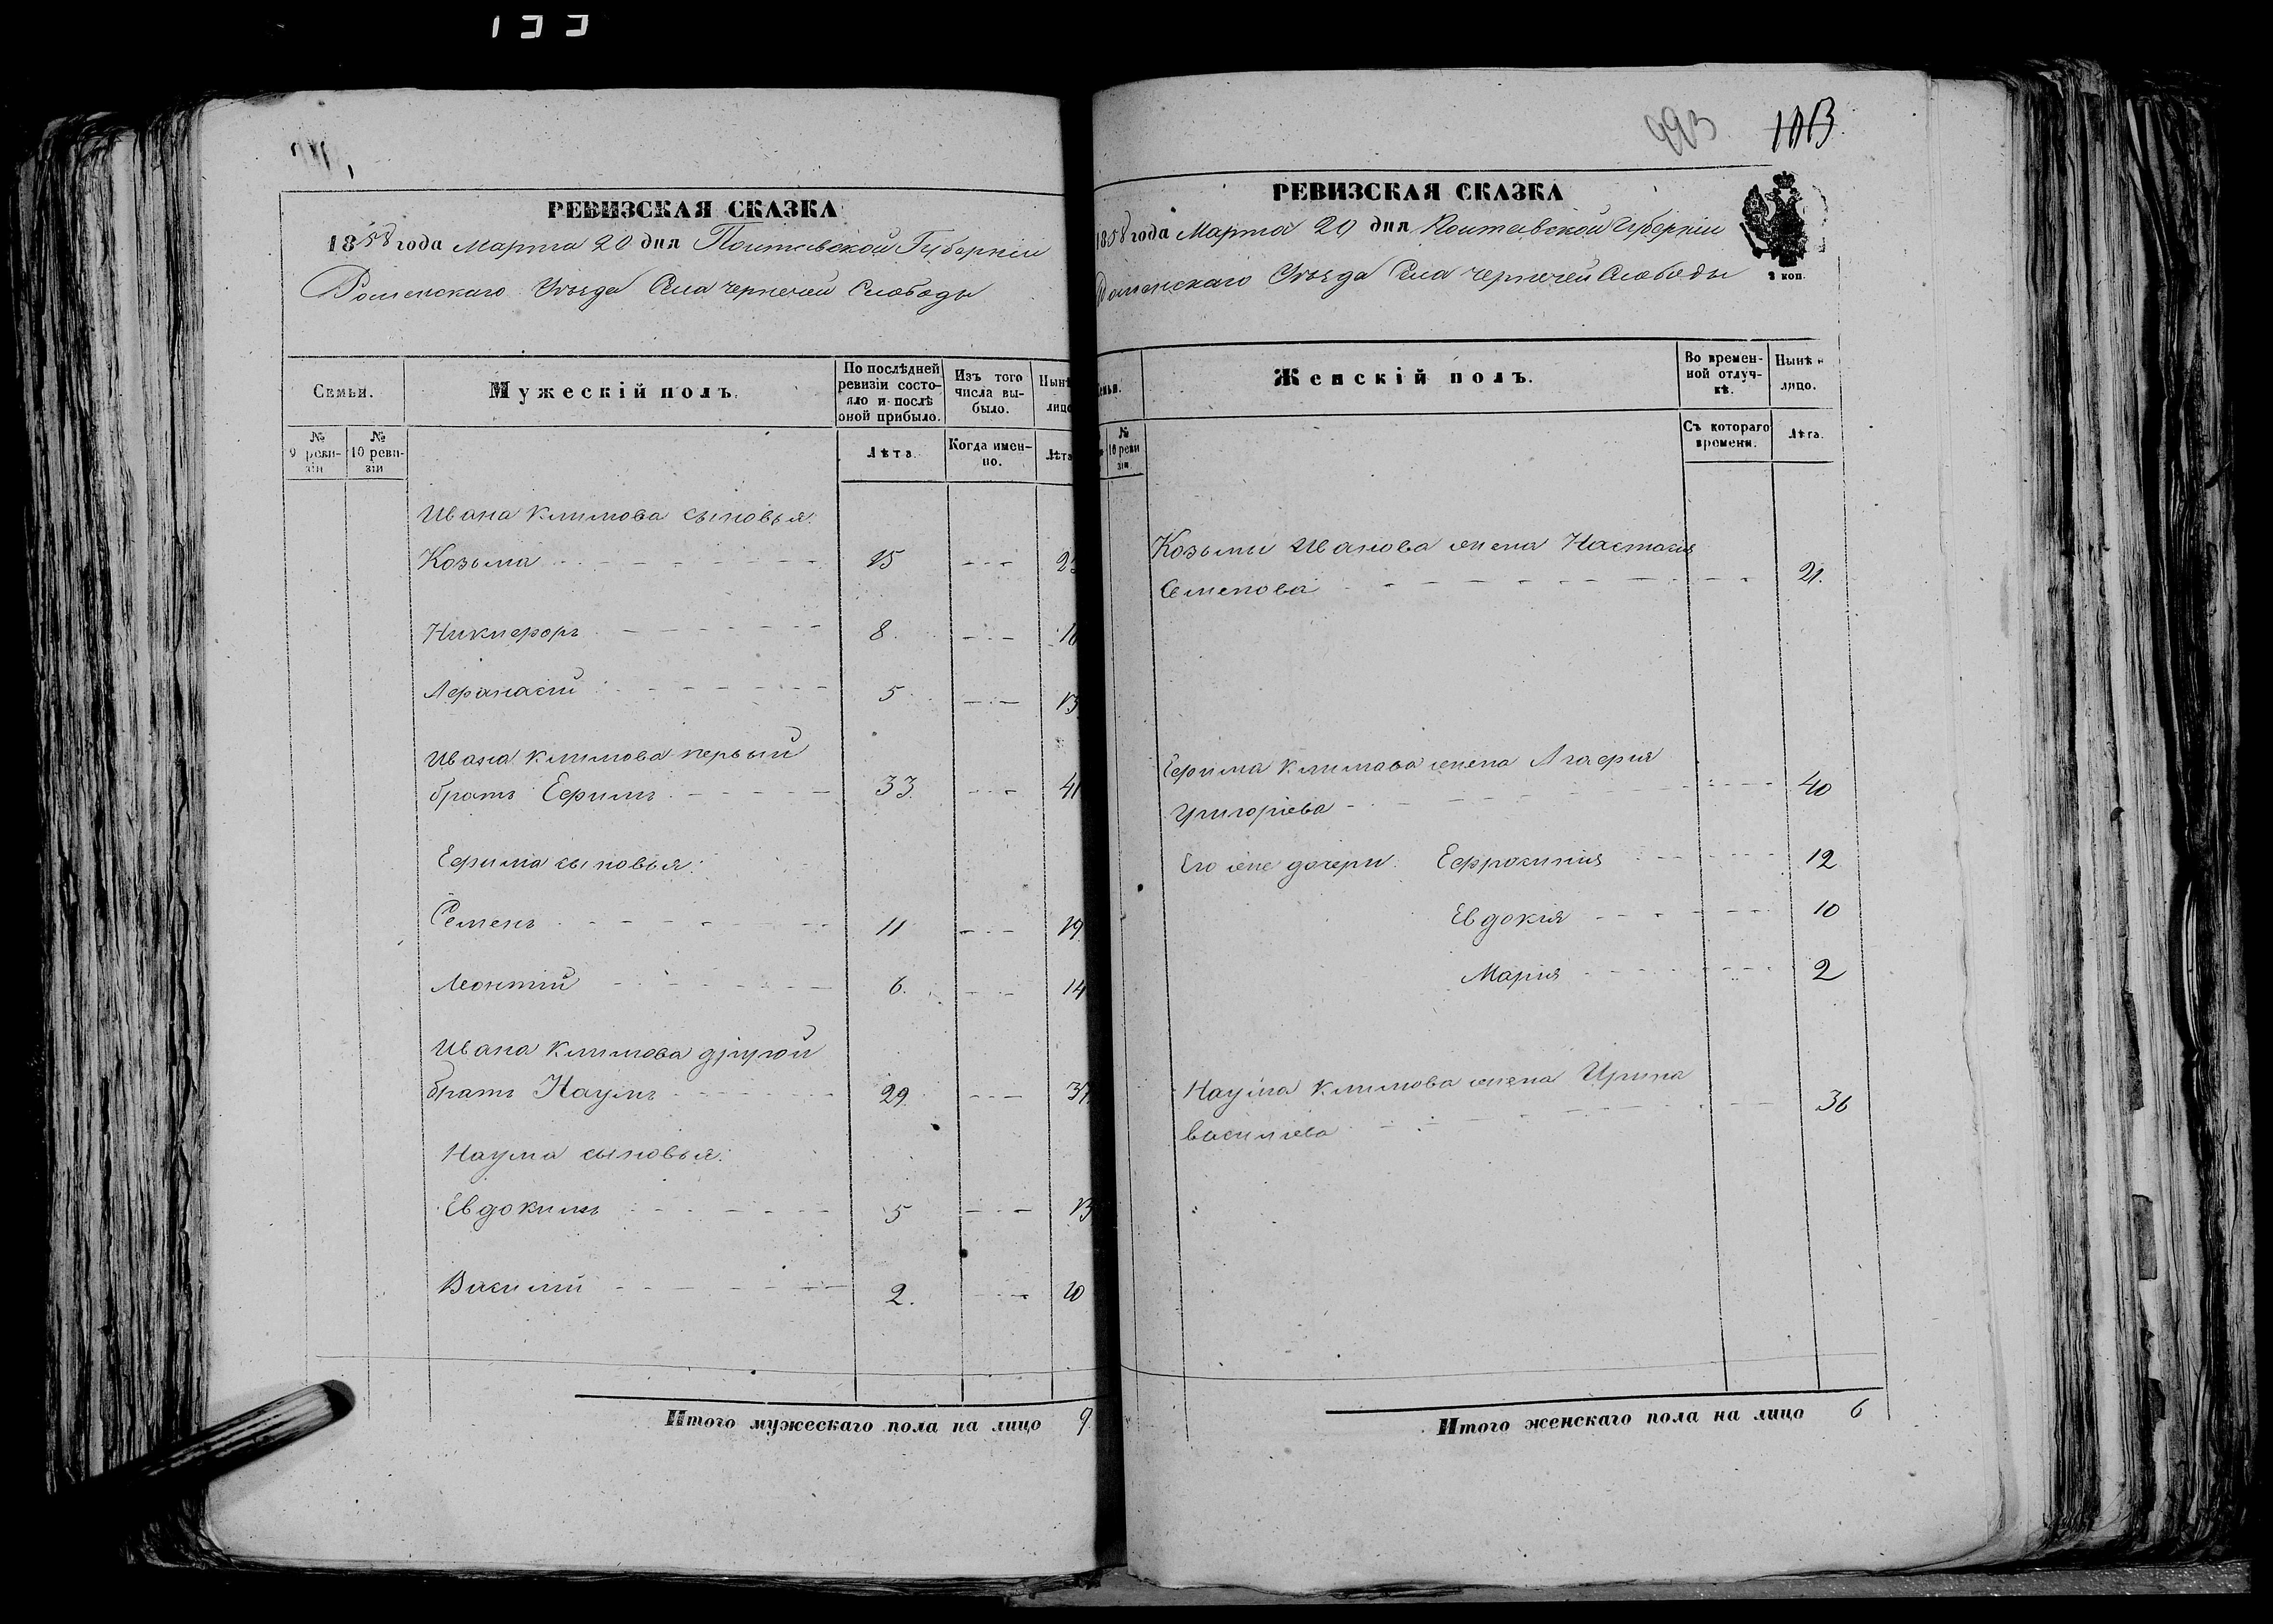 133
993 1013
РЕВИЗСКАЯ СКАЗКА
1858 года Марта 20 дня Полтавской Губерніи
Роменскаго Уѣзда Села Чернечей Слободы
Семьи.
Мужескій полъ.
По послѣдней ревизіи состояло и послѣ оной прибыло.
Изъ того числа выбыло.
Нынѣ лицо
№ 9 ревизіи
№ 10 ревизіи
Лѣта.
Когда именно.
Лѣта
Ивана Климова сыновья:
Козьма 15 23
Никифоръ 8 16
Афанасій 5 13
Ивана Климова первый
братъ Ефимъ 33 41
Ефима сыновья:
Семенъ 11 19
Леонтій 6. 14
Ивана Климова другой
братъ Наумъ 29 37
Наума сыновья:
Евдокимъ 5 13
Василій 2. 10
Итого мужескаго пола на лицо 9
РЕВИЗСКАЯ СКАЗКА
1858 года Марта 20 дня Полтавской Губерніи
Роменскаго Уѣзда Села Чернечей Слободы
2 коп.
Женскій полъ.
Во временной отлучкѣ.
Нынѣ н лицо.
№ 10 реви зіи
Съ котораго времени.
Лѣта.
Козьмы Иванова жена Настасія
Семенова 21.
Ефима Климова жена Агафія
Григорьева 40
Его же дочери Ефросинія 12
Евдокія 10
Марія 2
Наума Климова жена Ирина
Васильева 36
Итого женскаго пола на лицо 6